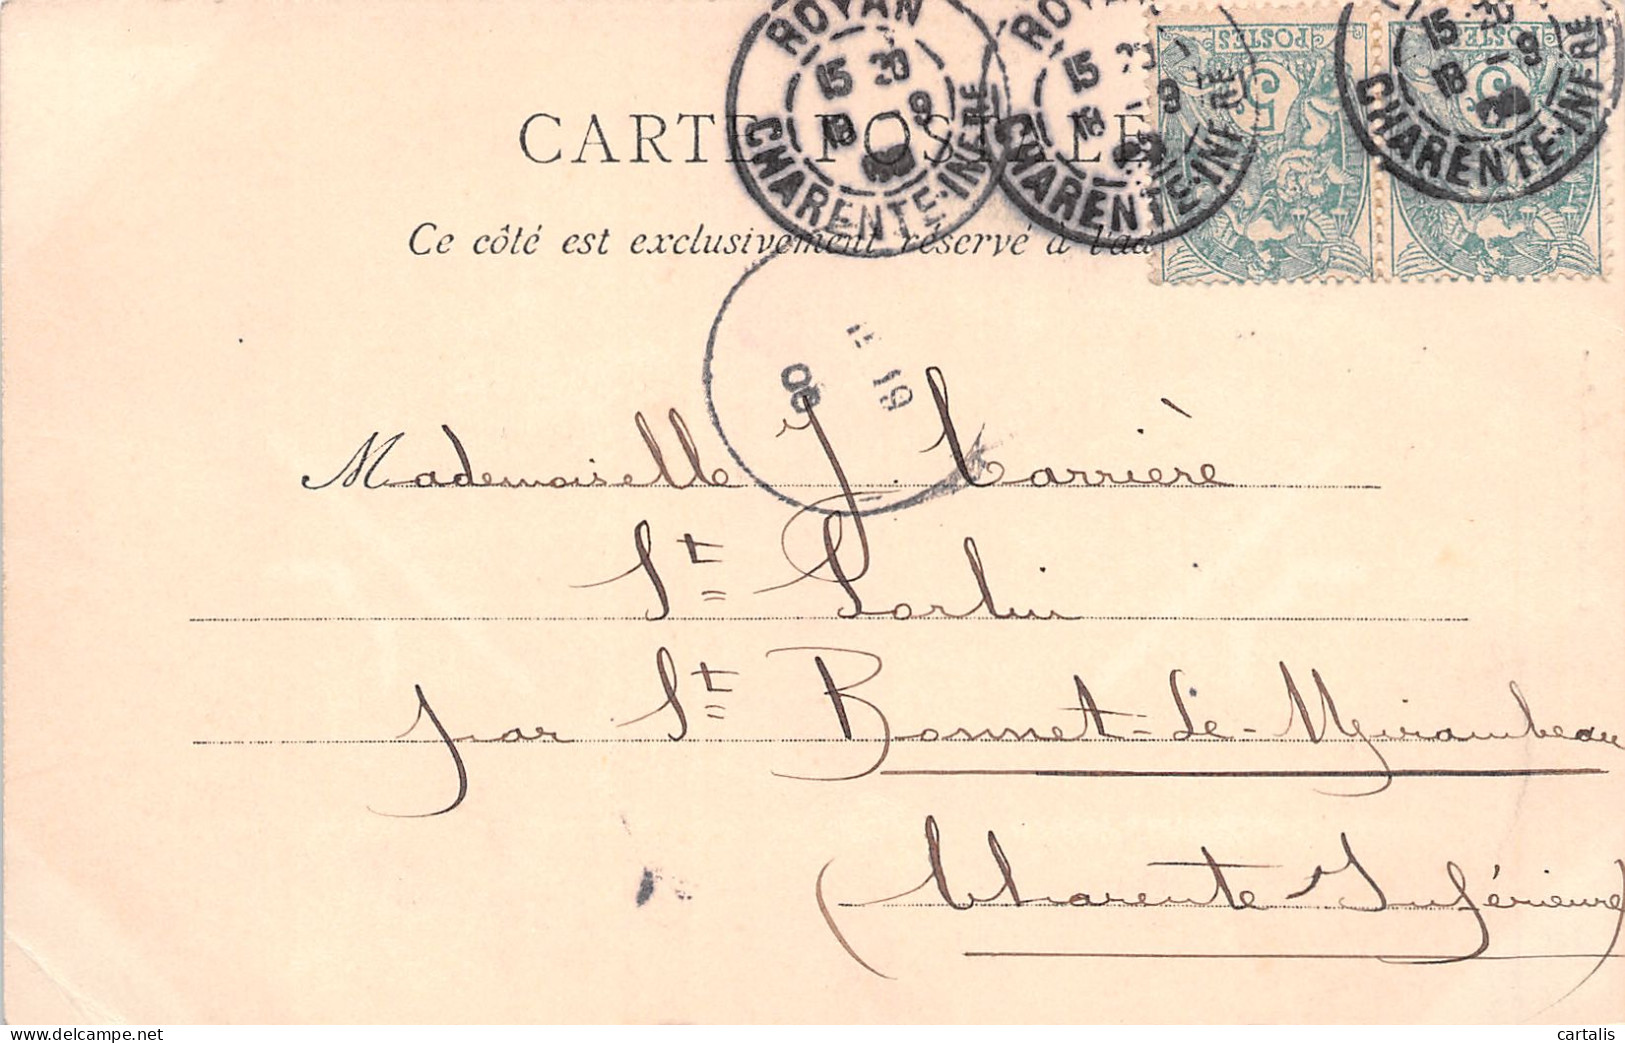 ROYAN
15 30
18 9
CHARENTE-INFRE
ROYAN
15
18 9
CHARENTE-INFRE
POSTES
5
POSTES
5
15 30
18 -9
CHARENTE-INFRE
CARTE POSTALE
Ce côté est exclusivement réservé à l'ad
19
08
Mademoiselle J. Carrière
St
par St Bonnet-Le-Mirambeau
(Charente Inférieure)
cartalis